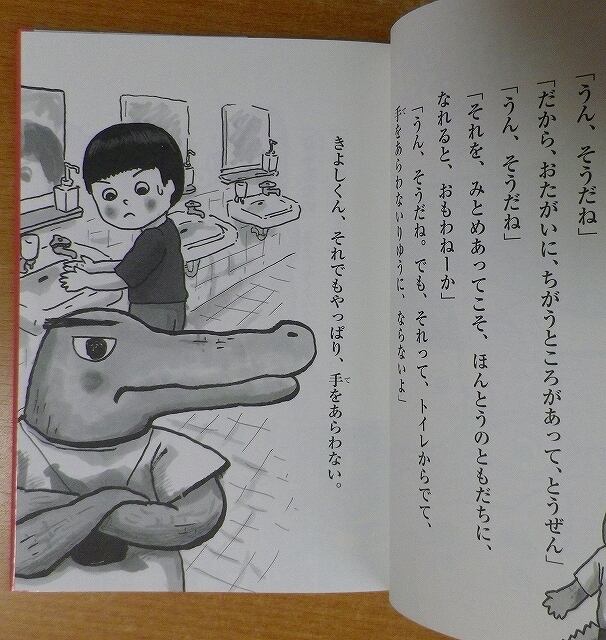 「うん、そうだね」
「だから、おたがいに、ちがうところがあって、とうぜん」
「うん、そうだね」
「それを、みとめあってこそ、ほんとうのともだちに、
なれると、おもわねーか」
「うん、そうだね。でも、それって、トイレからでて、
手をあらわないりゆうに、ならないよ」
きよしくん、それでもやっぱり、手をあらわない。